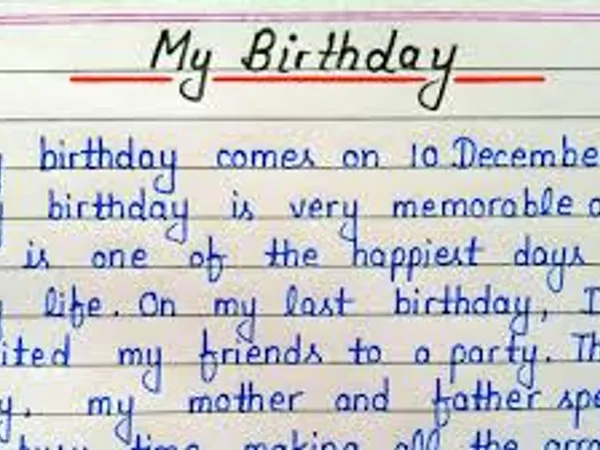 My Birthday
birthday comes on 10 Decembe
birthday is very memorable
is one of the happiest days
life. On my last birthday, I
ited my friends to a party. Th
y, my mother and father spe
busy time making all the arra